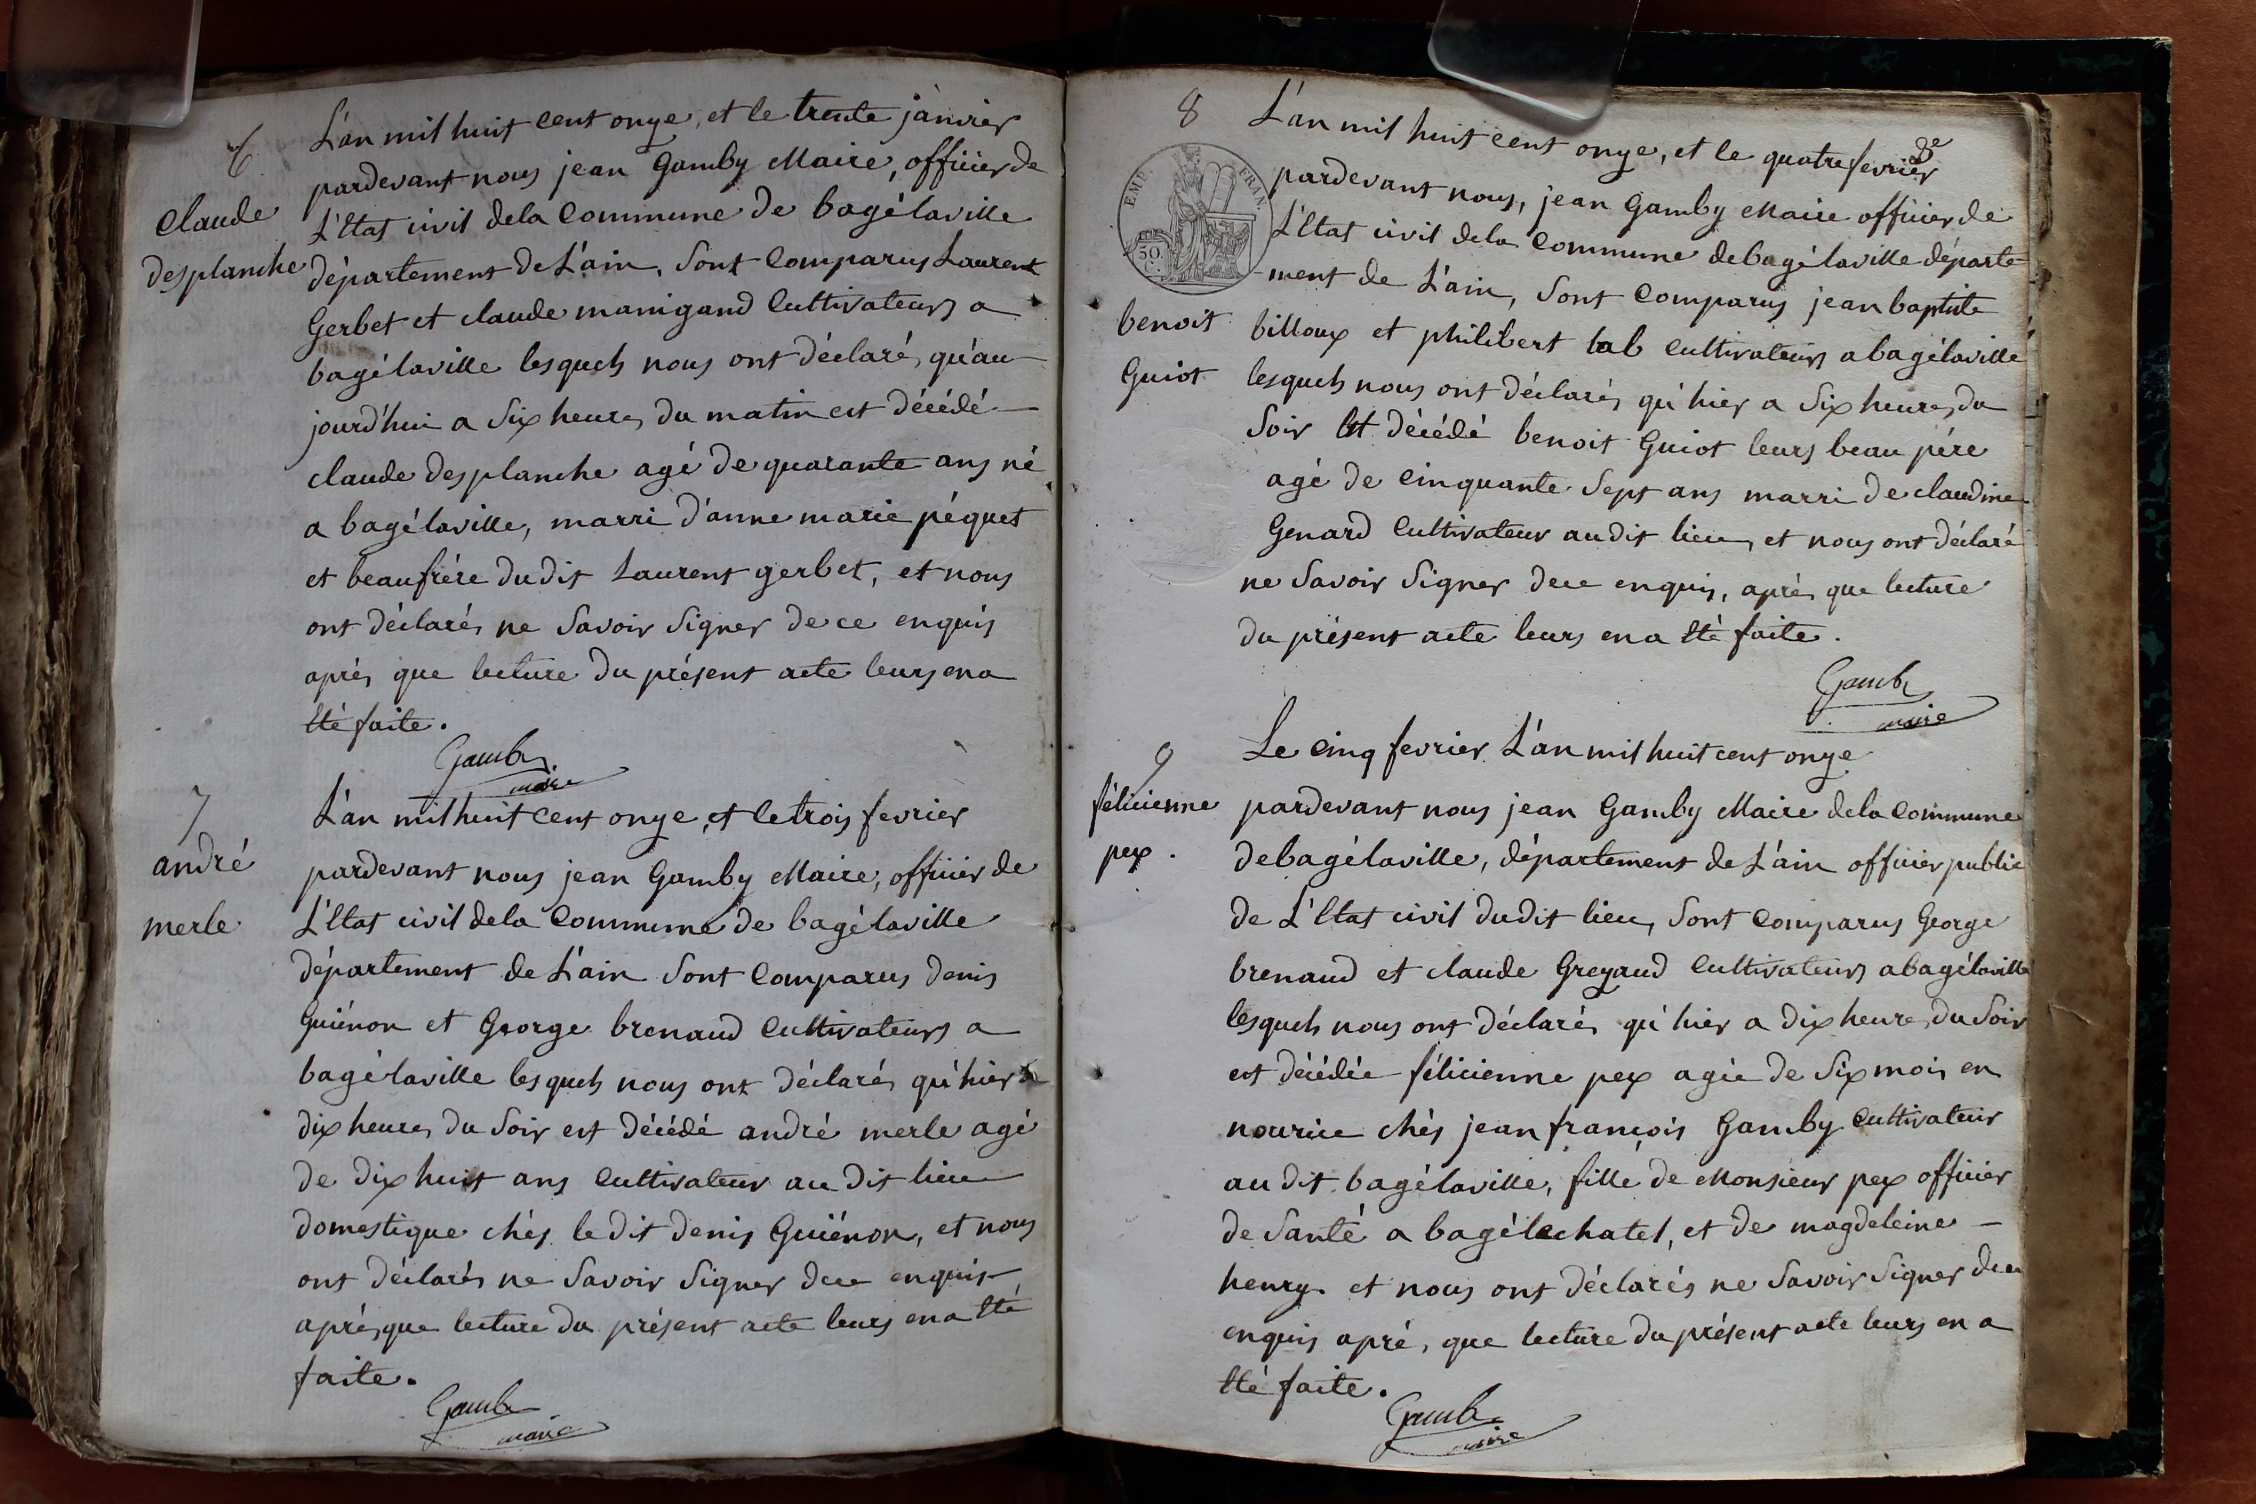 6
Claude
desplanche
L'an mil huit cent onze, et le trente janvier
pardevant nous jean Gamby Maire, officier de
L'Etat civil dela Commune de bagélaville
département de L'ain, sont Comparus Laurent
Gerbet et claude manigand Cultivateurs a
bagélaville lesquels nous ont déclarés qu'au-
jourd'hui a six heures du matin est décédé
claude desplanche agé de quarante ans né
a bagélaville, marri d'anne marie péquet
et beaufrére du dit Laurent gerbet, et nous
ont déclarés ne savoir signer de ce enquis
aprés que lecture du présent acte leurs en a
été faite.
Gamby
maire
7
andré
merle
L'an mil huit cent onze, et le trois fevrier
pardevant nous jean Gamby Maire, officier de
L'Etat civil dela Commune de bagélaville
département de L'ain sont Comparus denis
Guiénon et George brenaud Cultivateurs a
bagélaville lesquels nous ont déclarés qu'hier a
dix heures du soir est décédé andré merle agé
de dix huit ans Cultivateur au dit lieu
domestique chés le dit denis Guiénon, et nous
ont déclarés ne savoir signer dece enquis
aprés que lecture du présent acte leurs en a été
faite.
Gamby
maire
8
3e
EMP. FRAN.
50
benoit
Guiot
L'an mil huit cent onze, et le quatre fevrier
pardevant nous, jean Gamby Maire officier de
L'Etat civil dela Commune de bagélaville départe-
ment de L'ain, sont Comparus jean baptiste
billoux et philibert bab cultivateurs a bagélaville
lesquels nous ont déclarés qu'hier a six heures du
soir est décédé benoit Guiot leurs beau pére
agé de cinquante sept ans marri de claudine
Genard Cultivateur au dit lieu, et nous ont déclaré
ne savoir signer dece enquis, aprés que lecture
du présent acte leurs en a été faite.
Gamby
maire
9
félicienne
pex.
Le cinq fevrier L'an mil huit cent onze
pardevant nous jean Gamby Maire dela Commune
de bagélaville, département de L'ain officier public
de L'Etat civil du dit lieu, sont comparus George
brenaud et claude Greyaud Cultivateurs a bagélaville
lesquels nous ont déclarés qu'hier a dix heures du soir
est décédée félicienne pex agée de six mois en
nourice chés jean françois Gamby Cultivateur
au dit bagélaville, fille de Monsieur pex officier
de Santé a bagélechatel, et de magdeleine -
henry. et nous ont déclarés ne savoir signer dece
enquis aprés, que lecture du présent acte leurs en a
été faite.
Gamby
maire